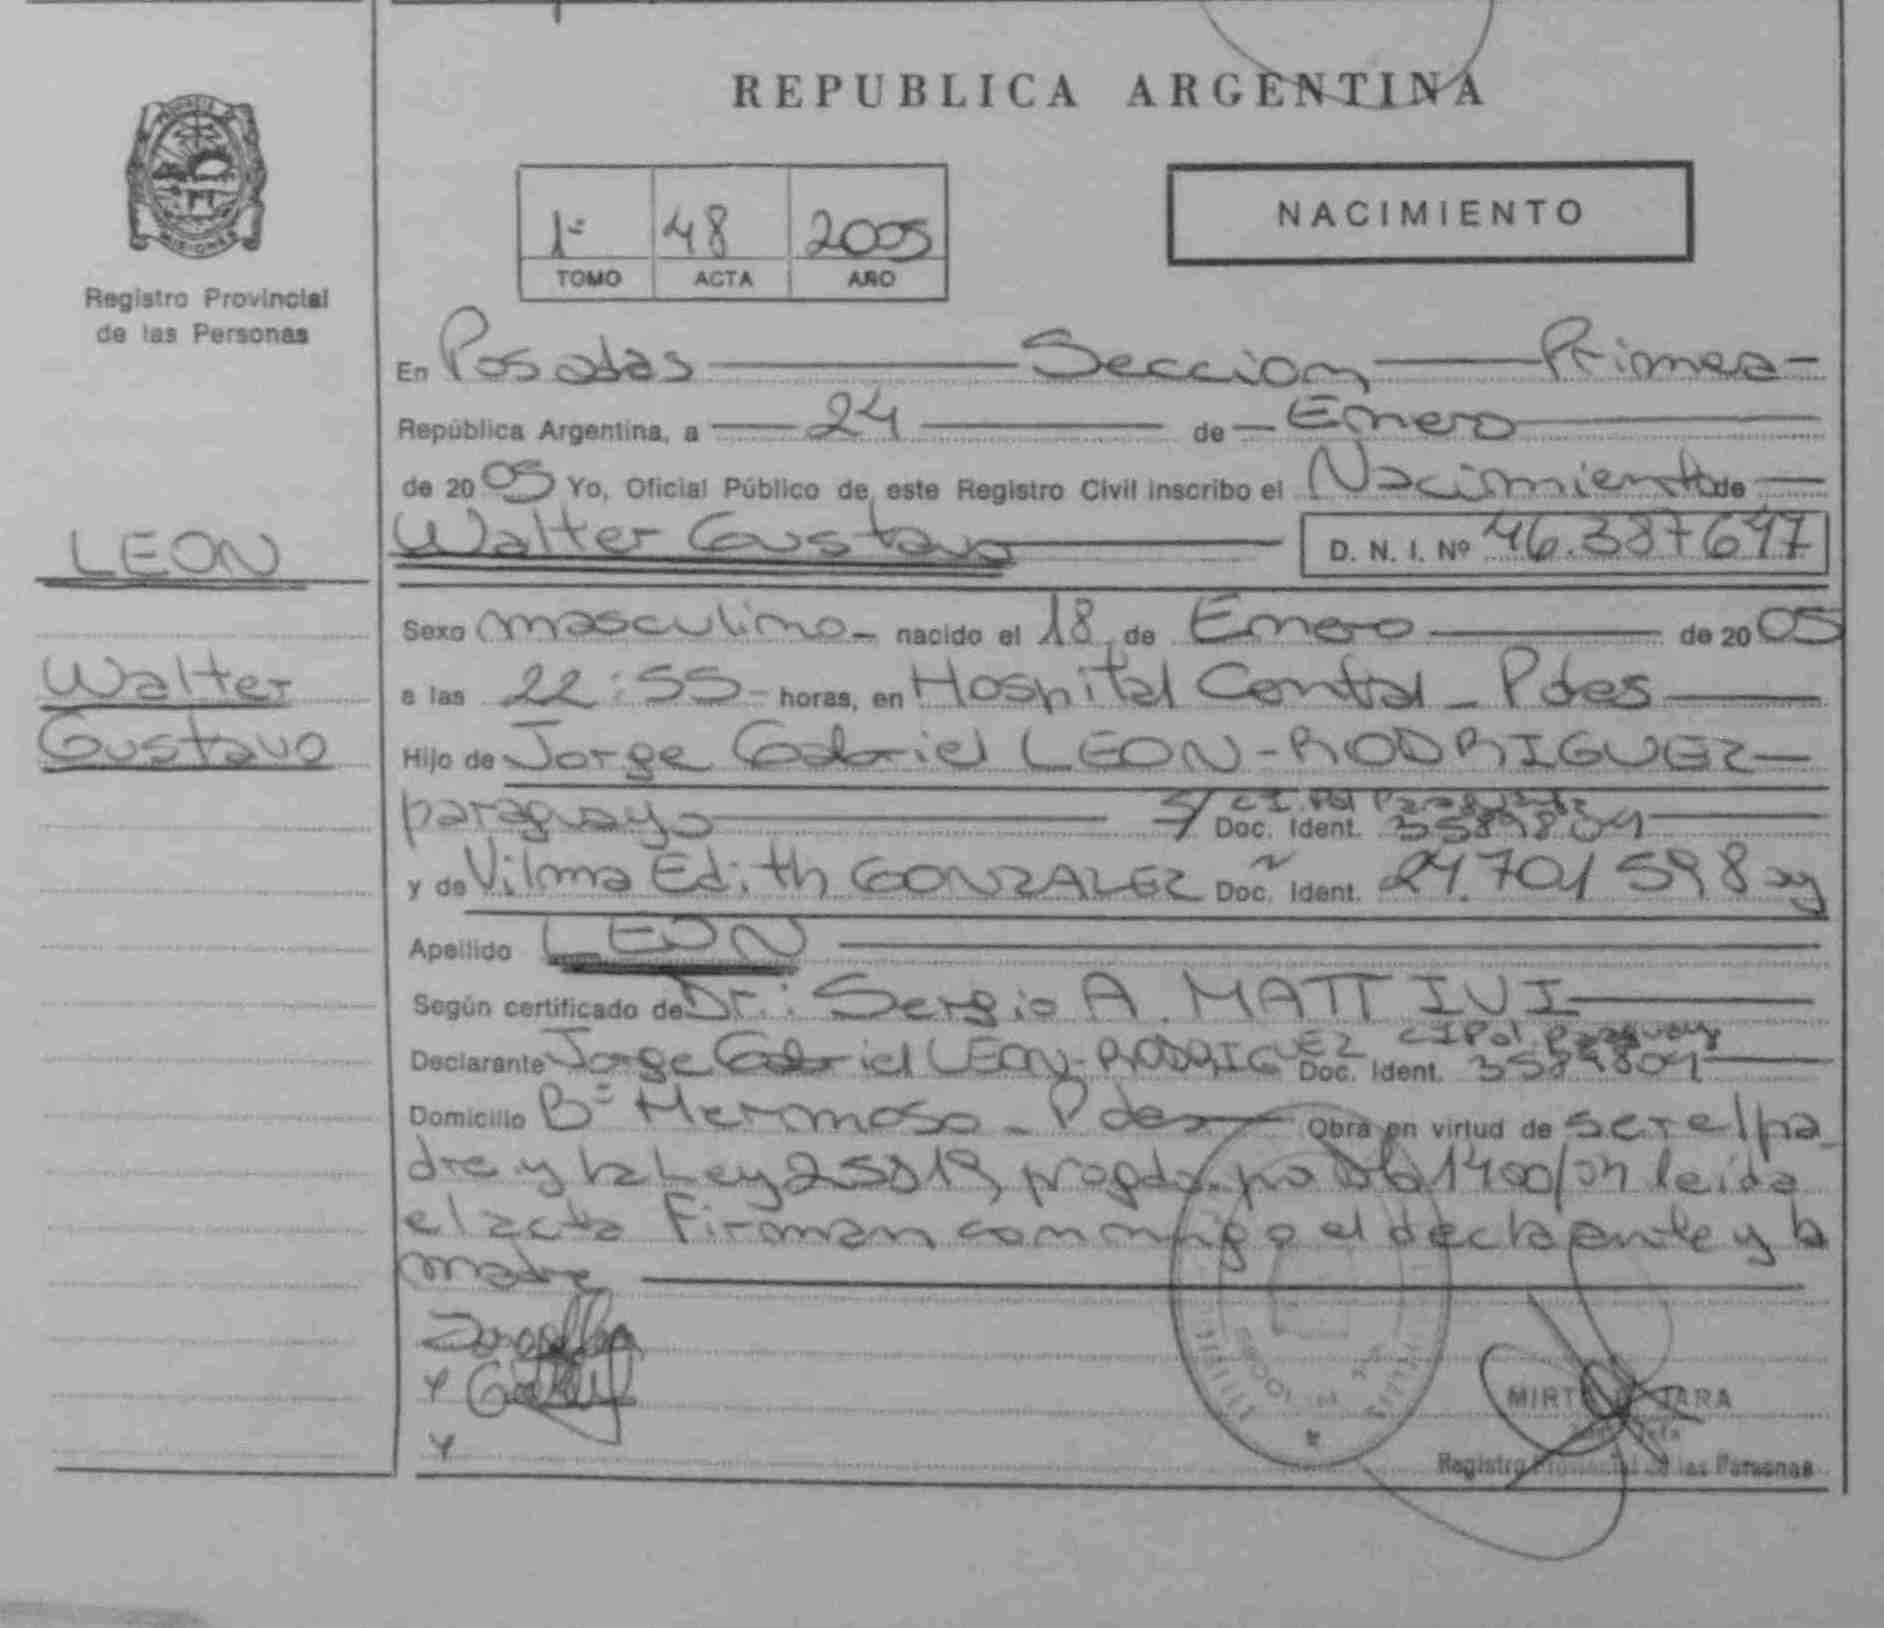 REPUBLICA ARGENTINA
MISIONES
Registro Provincial
de las Personas
1º 48 2005
TOMO ACTA AÑO
NACIMIENTO
En Posadas Seccion Primera
República Argentina, a 24 de Enero
de 2005 Yo, Oficial Público de este Registro Civil inscribo el Nacimiento de
LEON
Walter
Gustavo
Walter Gustavo D. N. I. Nº 46.387647
Sexo masculino nacido el 18 de Enero de 2005
a las 22:55 horas, en Hospital Central - Pdas
Hijo de Jorge Gabriel LEON-RODRIGUEZ
paraguayo C.I. Pol Paraguay
Doc. Ident. 3589804
y de Vilma Edith GONZALEZ Doc. Ident. 24.701598
Apellido LEON
Según certificado de Dr.: Sergio A. MATTIVI
Declarante Jorge Gabriel LEON-RODRIGUEZ C I Pol. Paraguay
Doc. Ident. 3589804
Domicilio Bº Hermoso - Pdas Obra en virtud de ser el pa
dre y la Ley 25819, progda. 1400/04 leida
el acta Firman conmigo el declarante y la
madre
MIRTA JARA
Registro Provincial de las Personas